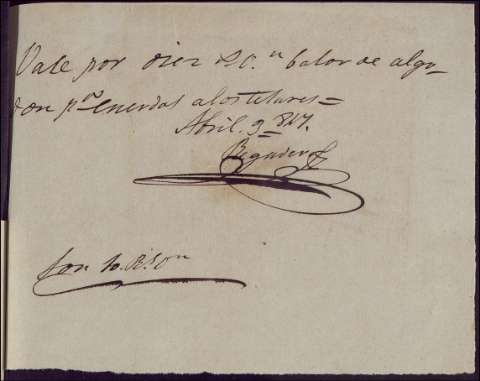 Vale por diez Rs. balor de algo-
don pa. cuerdas a los telares=
Abril. 9=847.
son 10. Rs.